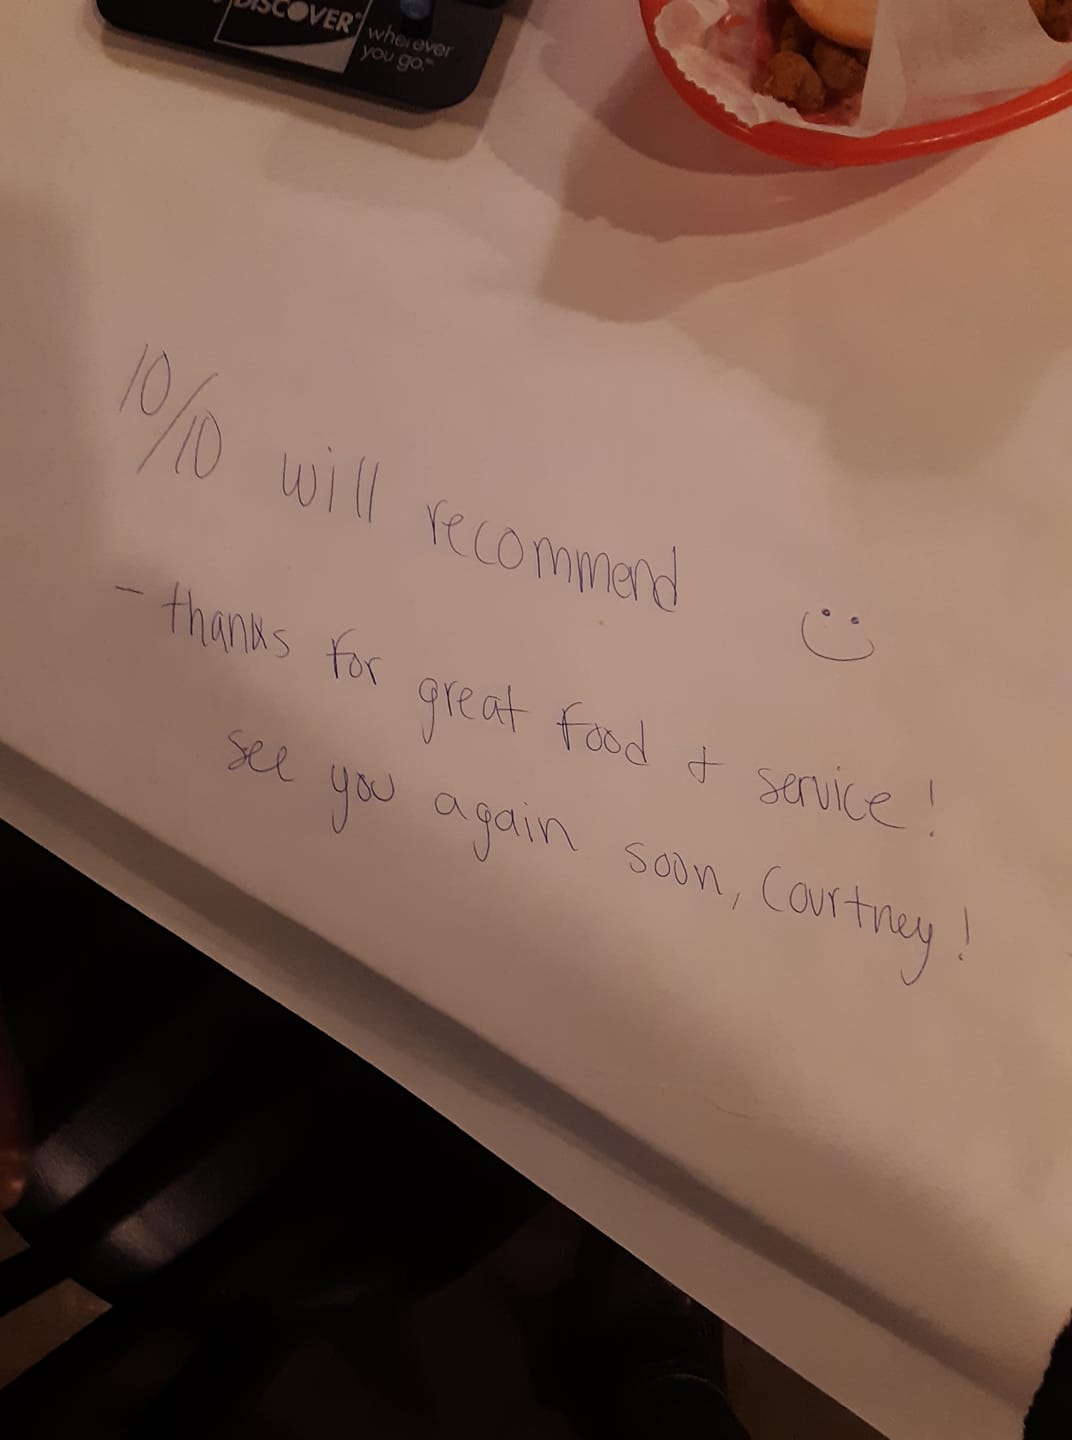 DISCOVER
wherever
you go.
10/10 will recommend
- thanks for great food & service!
see you again soon, Courtney!